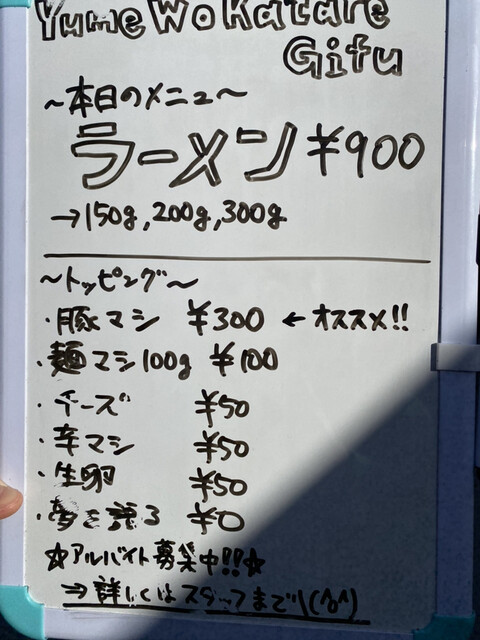 Yume Wo Katare
Gifu
～本日のメニュー～
ラーメン ¥900
→150g,200g,300g
～トッピング～
・豚マシ ¥300 ←オススメ!!
・麺マシ100g ¥100
・チーズ ¥50
・辛マシ ¥50
・生卵 ¥50
・夢を語る ¥0
☆アルバイト募集中!!☆
⇒詳しくはスタッフまで\(^o^)